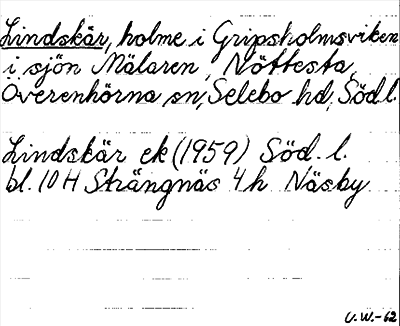 Lindskär, holme i Gripsholmsviken
i sjön Mälaren, Nöttesta,
Överenhörna sn, Selebo hd, Södl.
Lindskär ek (1959) Söd. l.
bl. 10 H Strängnäs 4 h Näsby
U.W.-62